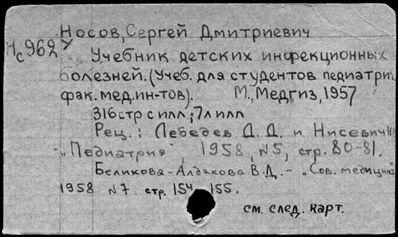 Носов, Сергей Дмитриевич
Нс962
Учебник детских инфекционных
болезней. (Учеб. для студентов педиатрич
фак. мед. ин-тов). М., Медгиз, 1957
316 стр с илл; 7 л илл
Рец.: Лебедев Д. Д. и Нисевич
-„Педиатрия", 1958, N5, стр. 80-81.
Беликова-Алдакова В.Д. - „Сов. медицина
1958 N7. стр. 154-155.
см. след. карт.